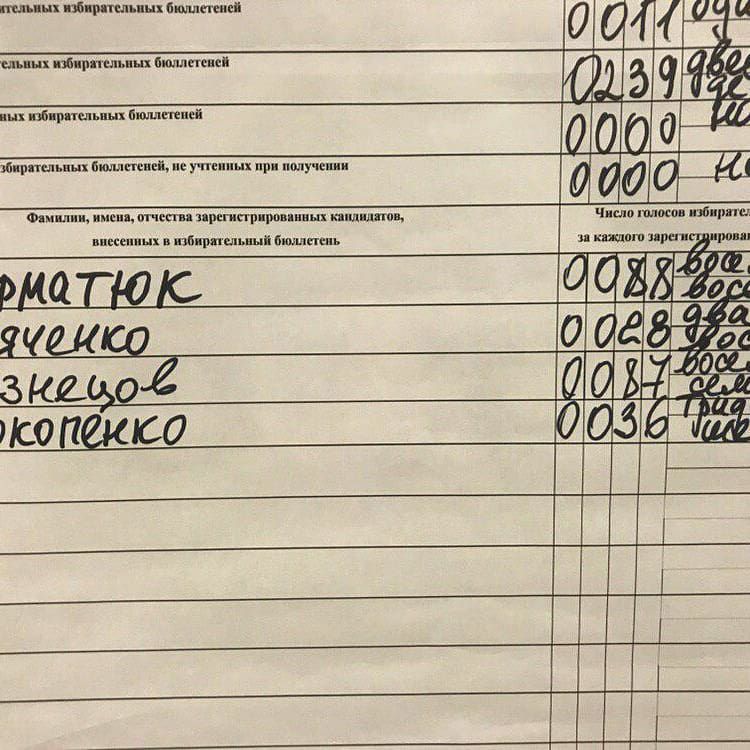 ительных избирательных бюллетеней 0011 оди
ельных избирательных бюллетеней 0239 двес
ных избирательных бюллетеней 0000 но
збирательных бюллетеней, не учтенных при получении 0000 но
Фамилии, имена, отчества зарегистрированных кандидатов,
внесенных в избирательный бюллетень
Число голосов избирател
за каждого зарегистрирован
рматюк 0088 восем
восе
яченко 0028 два
вос
знецов 0087 восем
семь
окопенко 0036 трид
шес